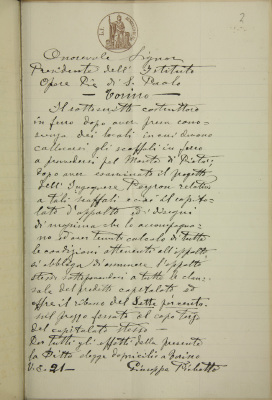 2
Onorevole Signor
Presidente dell'Istituto
Opere Pie di S. Paolo
Torino
Il sottoscritto costruttore
in ferro dopo aver preso cono-
scenza dei locali in cui devono
collocarsi gli scaffali in ferro
a provvedersi pel Monte di Pietà;
dopo aver esaminato il progetto
dell'Ingegnere Peyron relativo
a tali scaffali e così il capito-
lato d'appalto ed i disegni
di massima che lo accompagna-
no ed aver tenuto calcolo di tutte
le condizioni attenenti all'appalto
si obbliga di assumere l'appalto
stesso sottoponendosi a tutte le clau-
sole del predetto capitolato ed
offre il ribasso del Sette per cento
sul prezzo fissato al capo
del capitolato stesso
Per tutti gli effetti della presente
la Ditta elegge domicilio a Torino
V.S. 21
Giuseppe